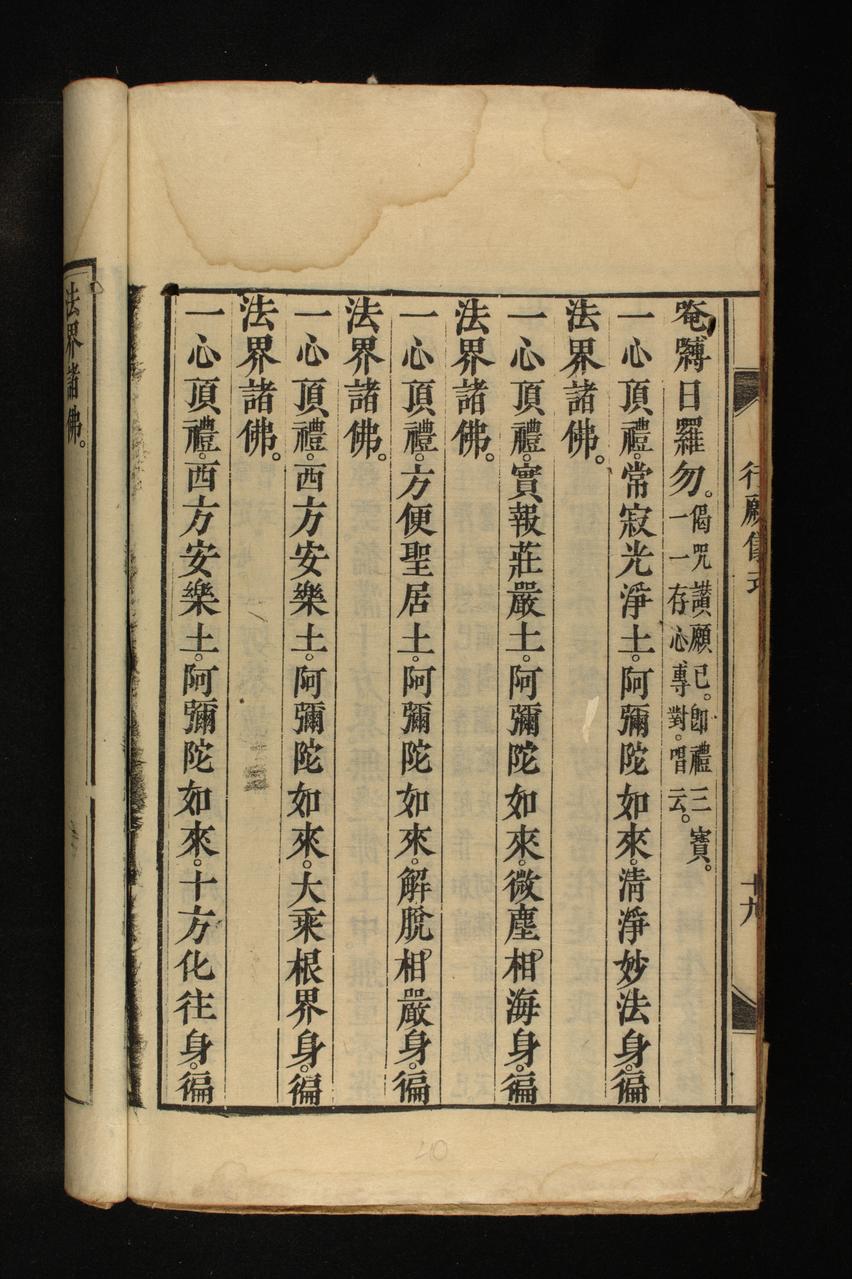 行願儀式
十九
唵嚩日囉勿。
偈呪讚願已。即禮三寶。
一一存心專對。唱云。
一心頂禮。常寂光淨土。阿彌陀如來。清淨妙法身。徧
法界諸佛。
一心頂禮。實報莊嚴土。阿彌陀如來。微塵相海身。徧
法界諸佛。
一心頂禮。方便聖居土。阿彌陀如來。解脫相嚴身。徧
法界諸佛。
一心頂禮。西方安樂土。阿彌陀如來。大乘根界身。徧
法界諸佛。
一心頂禮。西方安樂土。阿彌陀如來。十方化往身。徧
法界諸佛。
40